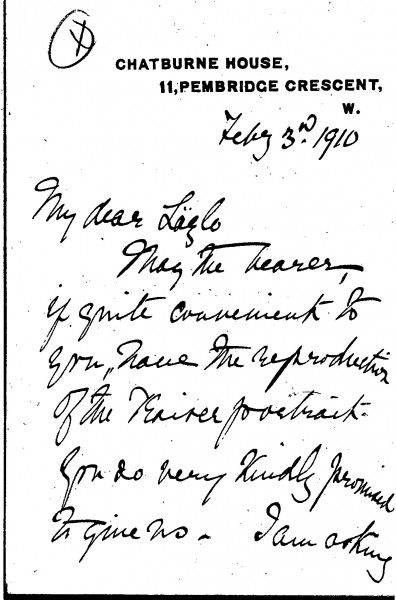 CHATBURNE HOUSE,
11, PEMBRIDGE CRESCENT,
W.
Feby 3rd. 1910
My dear László
May the bearer,
if quite convenient to
you, have the reproduction
of the Kaiser portrait
you so very kindly promised
to give us - I am asking